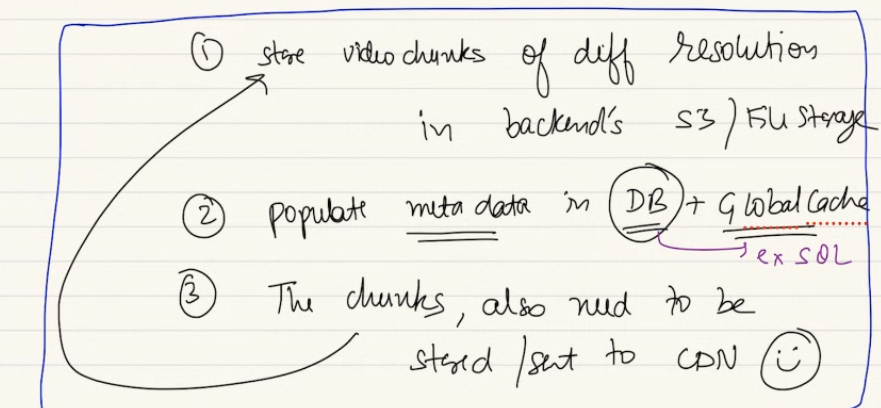 ① store video chunks of diff resolution
in backend's S3 / File Storage
② populate meta data in DB + Global Cache
ex SQL
③ The chunks, also need to be
stored / sent to CDN ☺